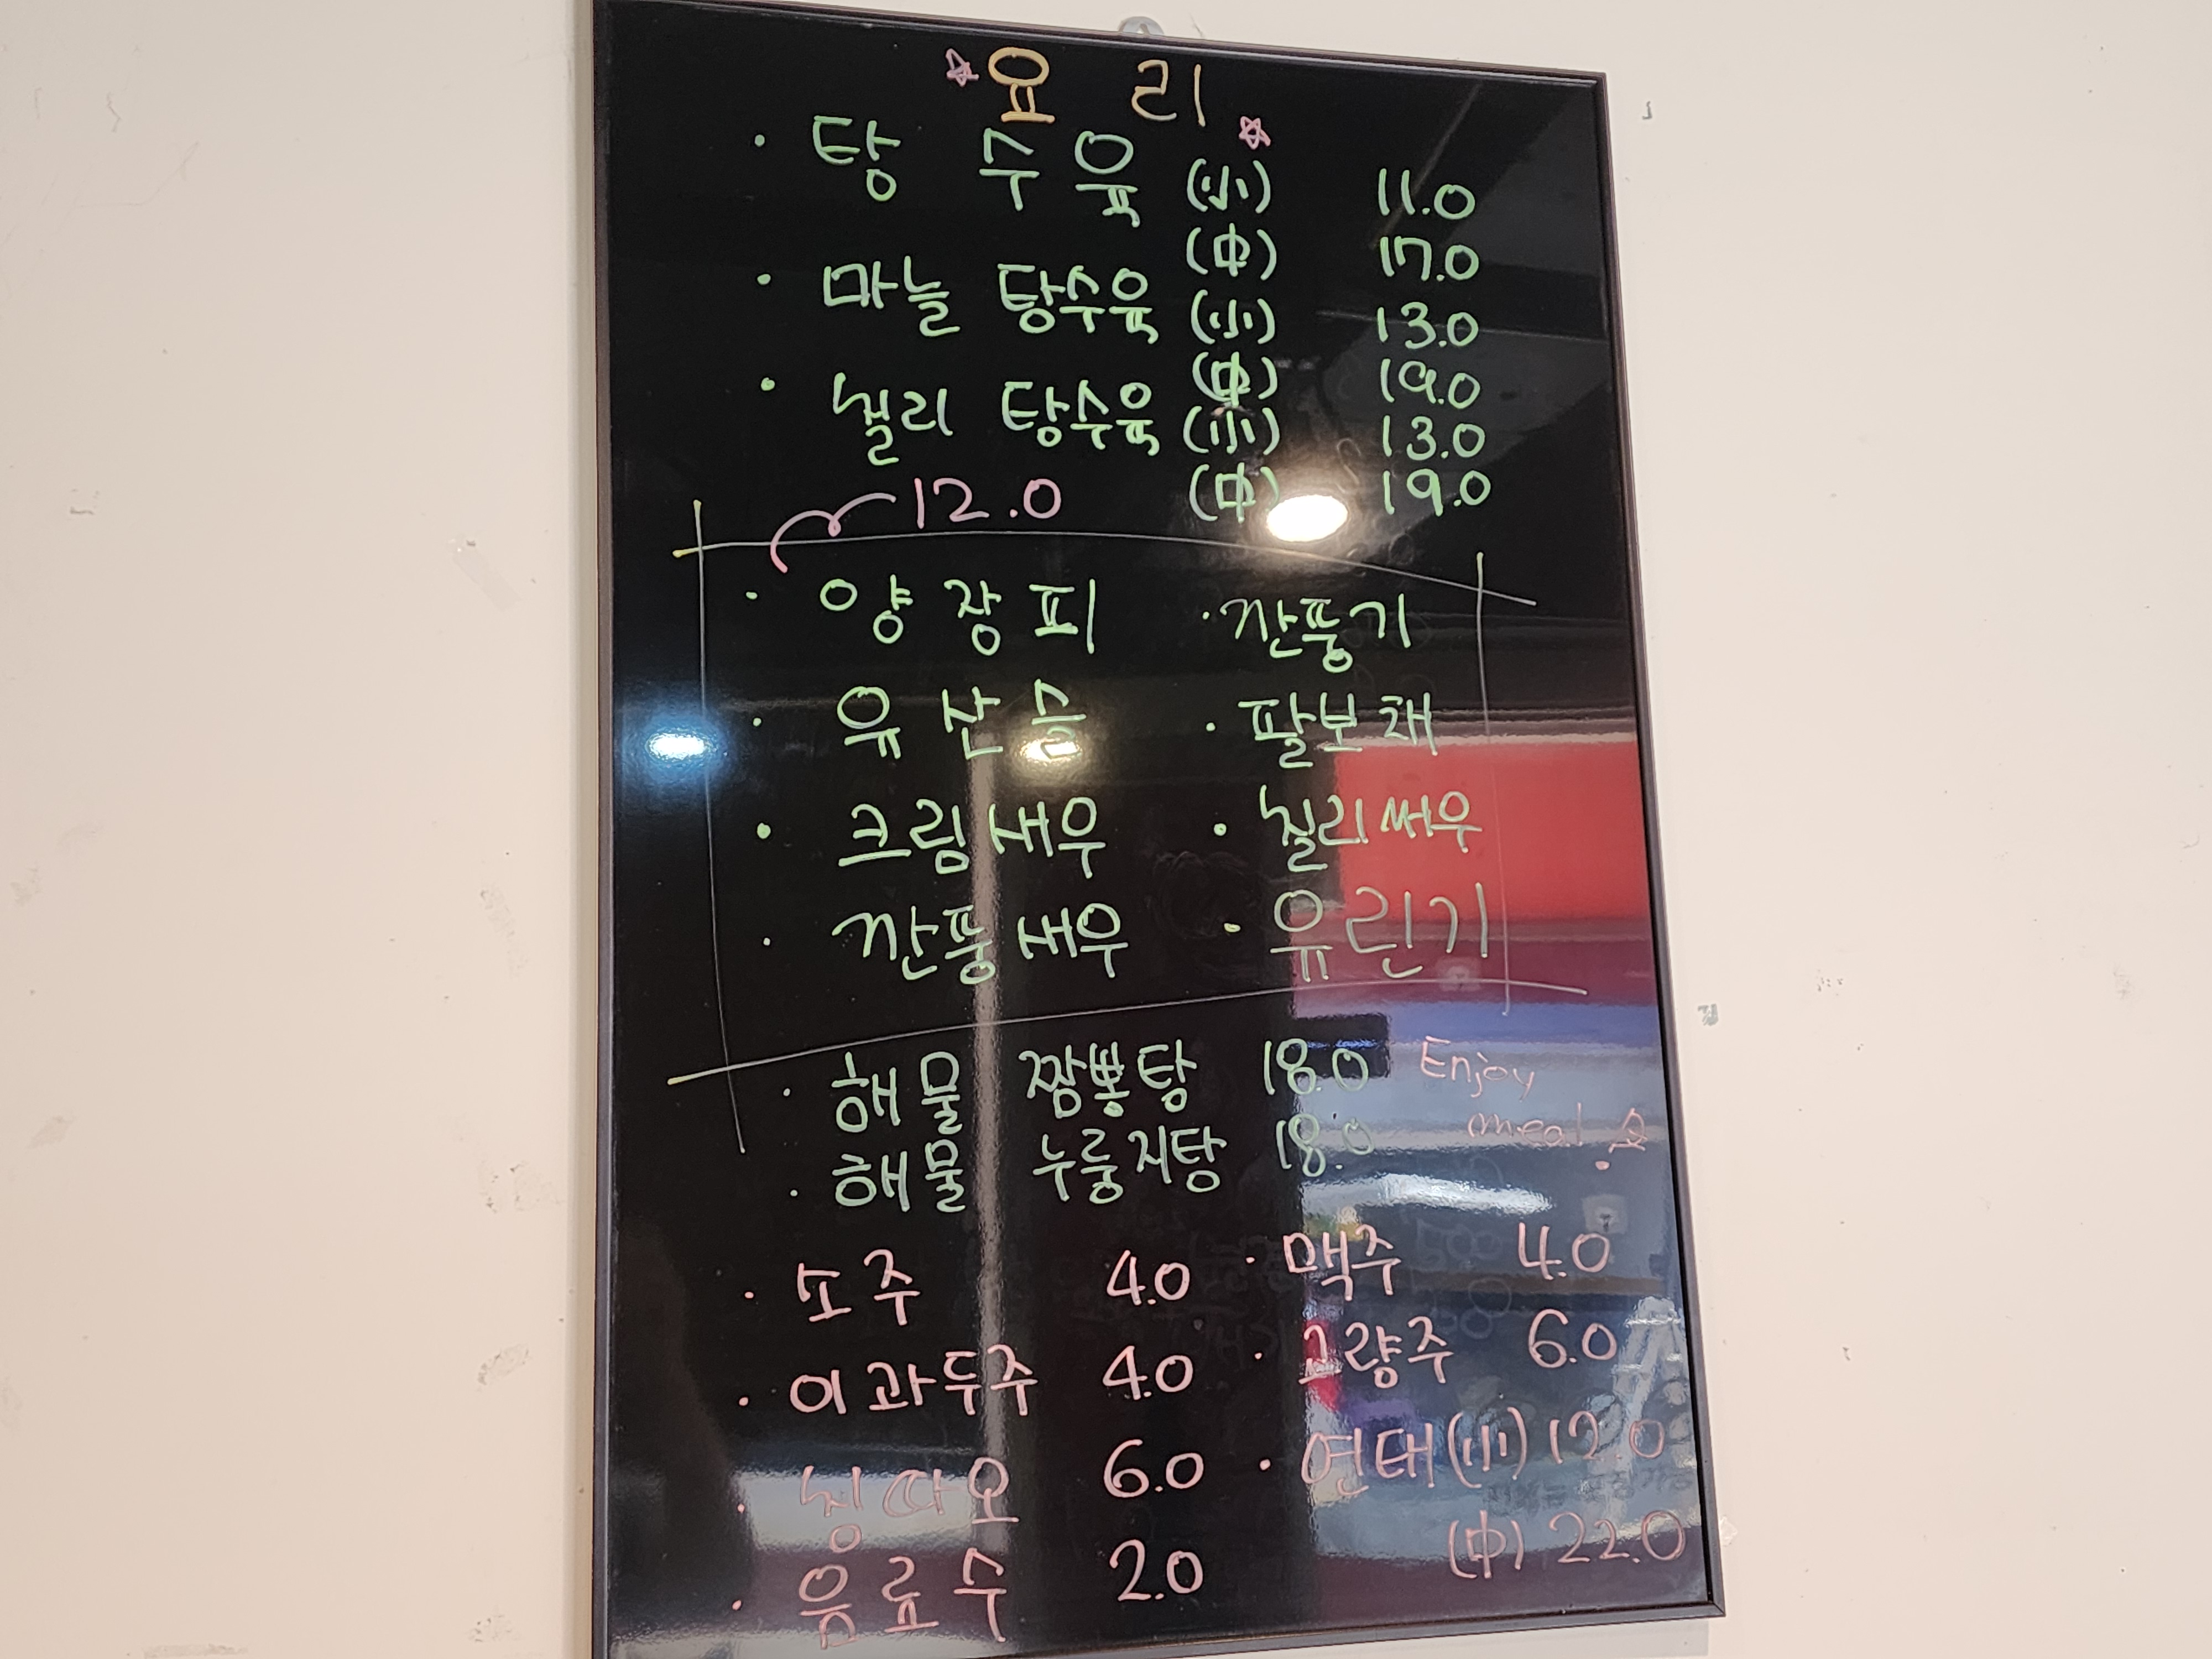 요 리
· 탕 수 육 (小) 11.0
(中) 17.0
· 마늘 탕수육 (小) 13.0
(中) 19.0
· 칠리 탕수육 (小) 13.0
(中) 19.0
12.0
· 양 장 피 · 깐풍기
· 유 산 슬 · 팔보채
· 크림새우 · 칠리새우
· 깐풍새우 · 유린기
· 해물 짬뽕탕 18.0
· 해물 누룽지탕 18.0
Enjoy
meal
· 소주 4.0 · 맥주 4.0
· 이과두주 4.0 · 고량주 6.0
· 칭따오 6.0 · 연태(小) 12.0
· 음료수 2.0 (中) 22.0